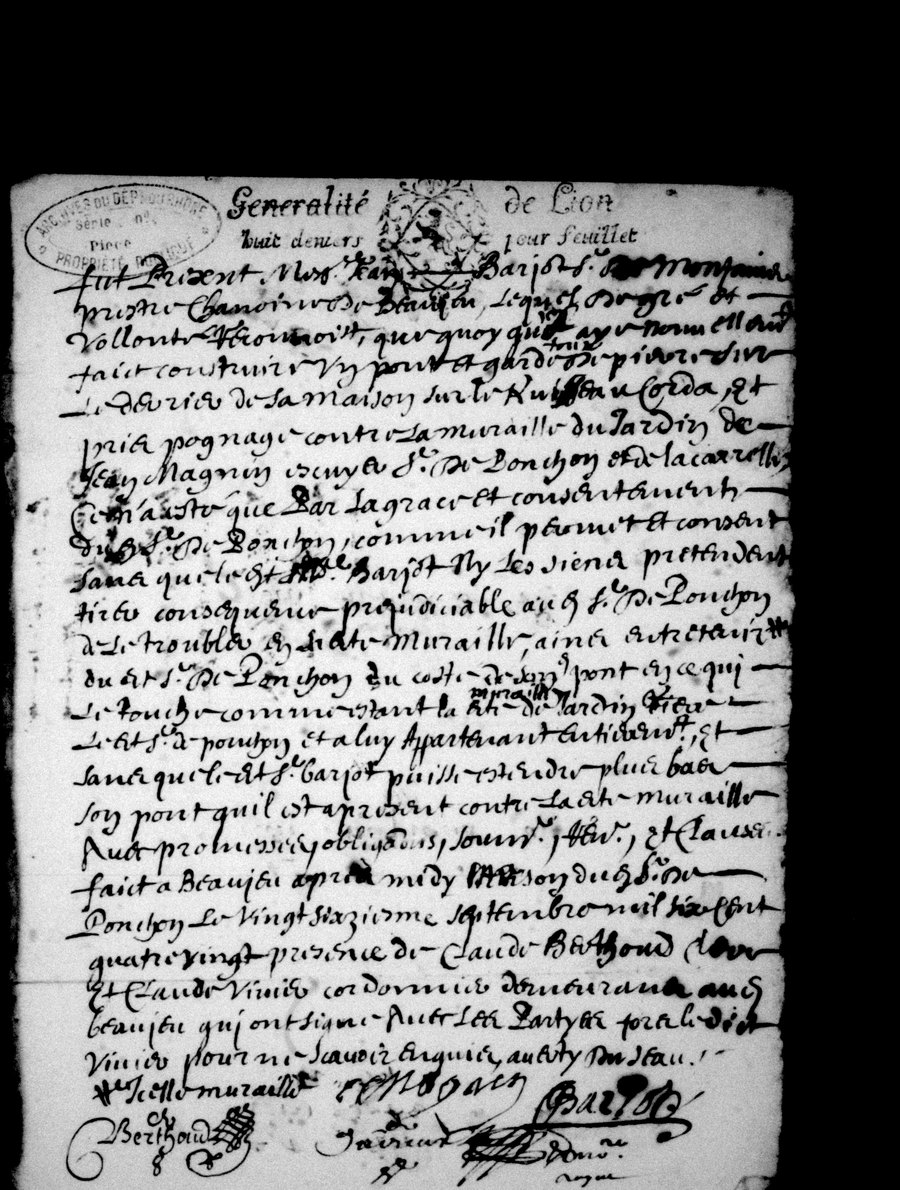 ARCHIVES DU DÉP. DU RHÔNE
Série
Piece
PROPRIÉTÉ
Generalité de Lion
huit deniers pour feuillet
fut Present Mess.re Jean Barjot s.r de Montaim
prestre Chanoine de Beaujeu, lequel de gré et
vollonté reconnoist, que quoy quil aye nouvellem.t
faict construire un pont et garde foux de pierre sur
le dernier de sa maison sur le Ruisseau Corda, et
pris pognage contre la muraille du Jardin de
Jean Magnin escuyer s.r de Ponchon et de la carrelle
Ce n'a esté que Par la grace et consentement
dud s.r de Ponchon, comme il permet et consent
sans que led s.r Barjot Ny les siens pretendent
tirer consequence prejudiciable aud s.r de Ponchon
de le troubler en lad muraille, ains entretenir
dud s.r de Ponchon du costé de son pont en ce qui
le touche comme estant la muraille dud Jardin
led s.r de ponchon et a luy Appartenant entierem.t, et
sans que led s.r barjot puisse estendre plus bas
son pont quil est apresent contre lad muraille
Avec promesses, obligaons, soum.ns, ren.ns, et Clauses
faict a Beaujeu apres midy maison dud s.r de
Ponchon le vingt siazieme septembre mil six Cent
quatre vingt presence de Claude Berthoud clerc
et Claude Vivier cordonnier demeurans aud
beaujeu qui ont signe Avec les Partyes fors le dict
Vivier pour ne scavoir enquis, averty du seau.
Icelle muraille
Magnin
Barjot
Berthoud